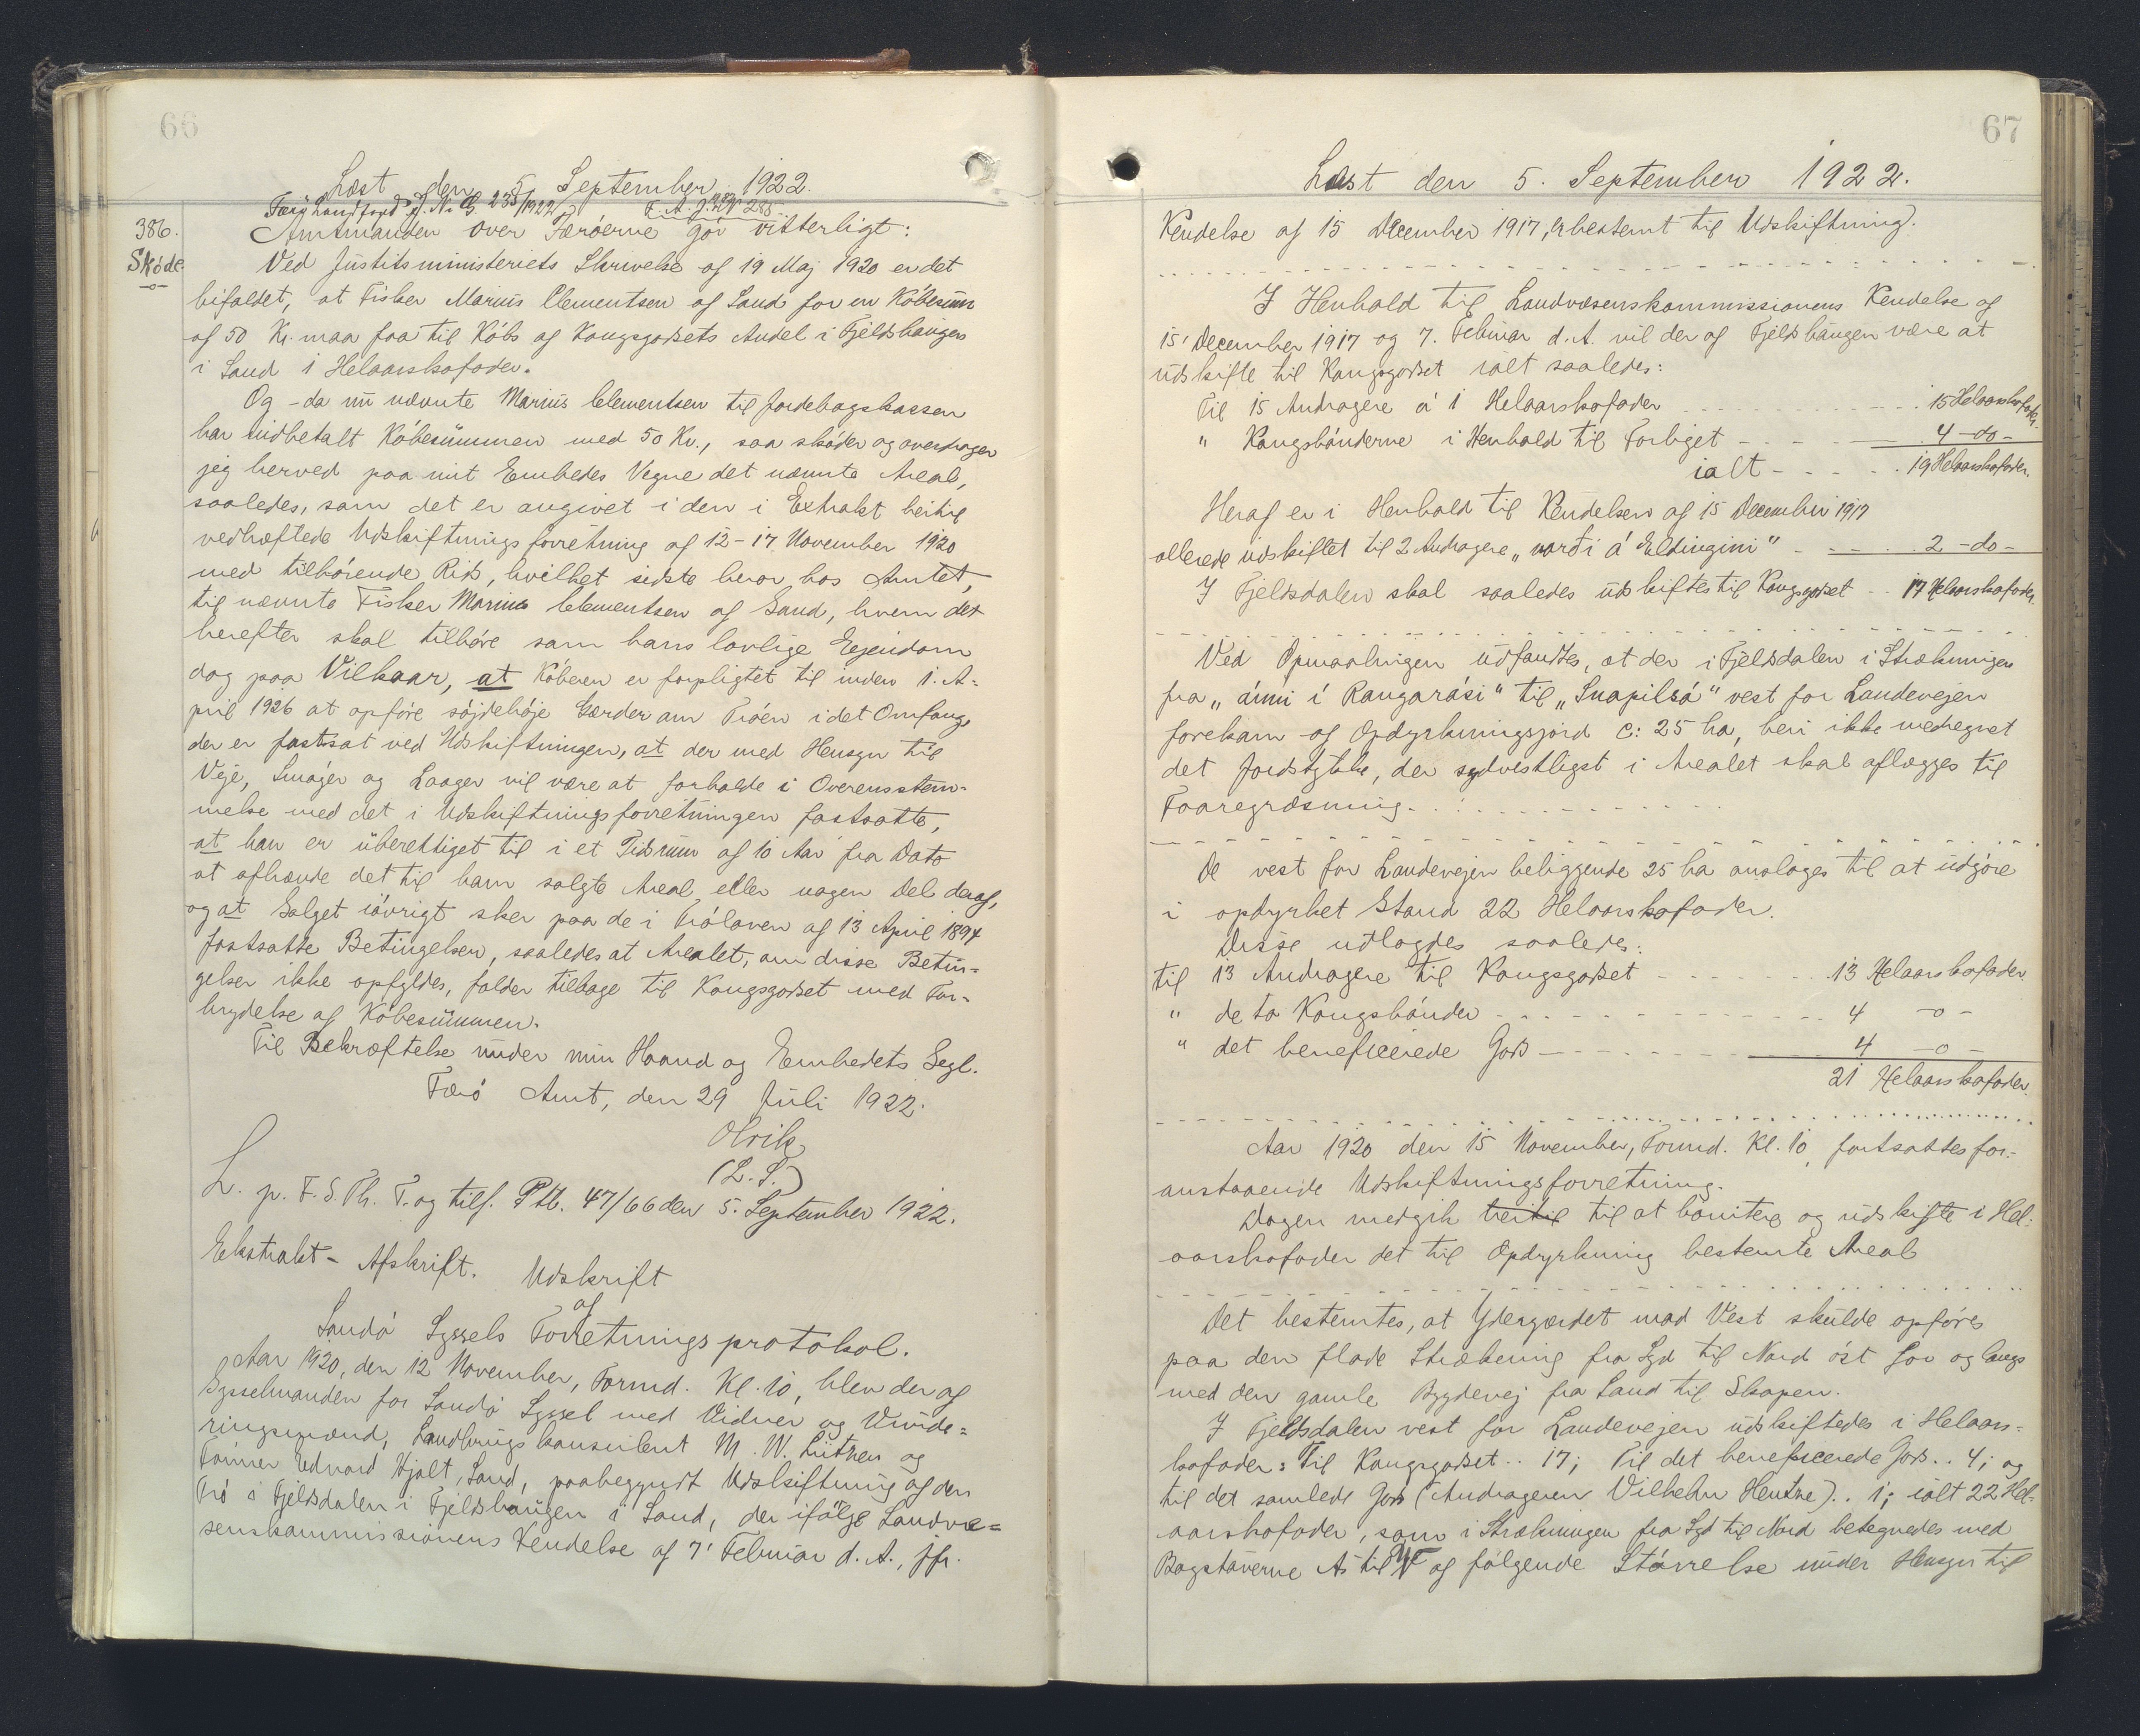 66
Læst den 5 September 1922.
Færø Landfoged J. N. B. 235/1922 F. A. J. 285.
386.
Skøde.
Amtmanden over Færøerne gør vitterligt:
Ved Justitsministeriets Skrivelse af 19 Maj 1920 er det
bifaldet, at Fisker Marius Clementsen af Sand for en Købesum
af 50 Kr. maa faa til Købs af Kongsgodsets Andel i Fjeldshaugen
i Sand 1 Helaarskofoder.
Og - da nu nævnte Marius Clementsen til Jordebogskassen
har indbetalt Købesummen med 50 Kr., saa skøder og overdrager
jeg herved paa mit Embedes Vegne det nævnte Areal,
saaledes, som det er angivet i den i Extrakt hertil
vedhæftede Udskiftningsforretning af 12-17 November 1920
med tilhørende Rids, hvilket sidste beror hos Amtet,
til nævnte Fisker Marius Clementsen af Sand, hvem det
herefter skal tilhøre som hans lovlige Ejendom
dog paa Vilkaar, at Køberen er forpligtet til inden 1. A-
pril 1926 at opføre søjdehøje Gærder om Trøen i det Omfang,
der er fastsat ved Udskiftningen, at der med Hensyn til
Veje, Smøjer og Laager vil være at forholde i Overensstem-
melse med det i Udskiftningsforretningen fastsatte,
at han er uberettiget til i et Tidsrum af 10 Aar fra Dato
at afhænde det til ham solgte Areal eller nogen Del deraf,
og at Salget iøvrigt sker paa de i Trøloven af 13 April 1894
fastsatte Betingelser, saaledes at Arealet, om disse Betin-
gelser ikke opfyldes, falder tilbage til Kongsgodset med For-
brydelse af Købesummen.
Til Bekræftelse under min Haand og Embedets Segl.
Færø Amt, den 29 Juli 1922.
Olrik
(L. S.)
L. p. F. S. Th. T. og tilf. Ptb. 47/66 den 5. September 1922.
Ekstrakt - Afskrift. Udskrift
af
Sandø Syssels Forretningsprotokol.
Aar 1920, den 12 November, Formd. Kl. 10, blev der af
Sysselmanden for Sandø Syssel med Vidner og Vurde-
ringsmænd, Landbrugskonsulent M. W. Lützen og
Tømrer Edvard Hjalt, Sand, paabegyndt Udskiftning af den
Trø i Fjeldsdalen i Fjeldshaugen i Sand, der ifølge Landvæ-
senskommissionens Kendelse af 7' Februar d. A., jfr.
67
Læst den 5. September 1922.
Kendelse af 15 December 1917, er bestemt til Udskiftning.
I Henhold til Landvæsenskommissionens Kendelse af
15' December 1917 og 7. Februar d. A. vil der af Fjeldshaugen være at
udskifte til Kongsgodset ialt saaledes:
Til 15 Andragere á 1 Helaarskofoder 15 Helaarskofoder.
" Kongsbønderne i Henhold til Forliget 4 - do -
ialt 19 Helaarskofoder.
Heraf er i Henhold til Kendelsen af 15 December 1917
allerede udskiftet til 2 Andragere „norði á Eldingini“ 2 - do -
I Fjeldsdalen skal saaledes udskiftes til Kongsgodset 17 Helaarskofoder.
Ved Opmaalingen udfandtes, at der i Fjeldsdalen i Strækningen
fra „ánni í Rangarási“ til „Snapilsá“ vest for Landevejen
forekom af Opdyrkningsjord c: 25 ha, heri ikke medregnet
det Jordstykke, der sydvestligst i Arealet skal aflægges til
Faaregræsning.
De vest for Landevejen beliggende 25 ha ansloges til at udgøre
i opdyrket Stand 22 Helaarskofoder.
Disse udlagdes saaledes:
til 13 Andragere til Kongsgodset 13 Helaarskofoder.
" de to Kongsbønder 4 - o -
" det beneficerede Gods 4 - o -
21 Helaarskofoder.
Aar 1920 den 15 November, Formd. Kl. 10, fortsattes for-
anstaaende Udskiftningsforretning.
Dagen medgik hertil til at bonitere og udskifte i Hel-
aarskofoder det til Opdyrkning bestemte Areal
Det bestemtes, at Ydergærdet mod Vest skulde opføres
paa den flade Strækning fra Syd til Nord øst for og langs
med den gamle Bygdevej fra Sand til Skopen.
I Fjeldsdalen vest for Landevejen udskiftedes i Helaars-
kofoder: Til Kongsgodset .. 17; Til det beneficerede Gods .. 4; og
til det samlede Gods (Andrageren Vilhelm Hentze) .. 1; ialt 22 Hel-
aarskofoder, som i Strækningen fra Syd til Nord betegnedes med
Bogstaverne A til V af følgende Størrelse under Hensyn til